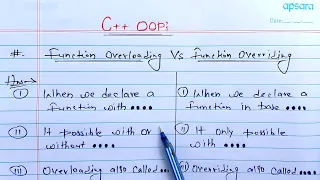 apsara
Date:
C++ OOP:
#. Function Overloading Vs Function Overriding
Ans→
(I) When we declare a function with ....
(I) When we declare a function in base ....
(II) It possible with or without ....
(II) It only possible with ....
(III) Overloading also called....
(III) Overriding also called....